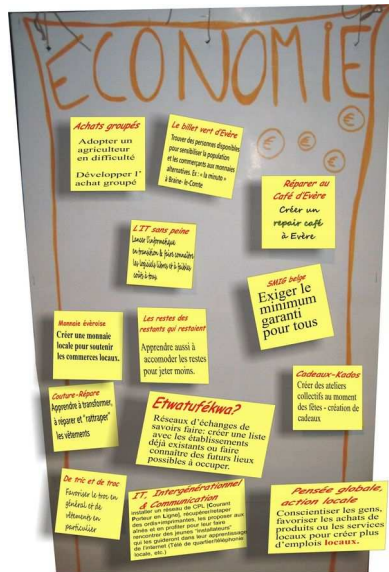 ECONOMIE
Achats groupés
Adopter un
agriculteur
en difficulté
Développer l'
achat groupé
Le billet vert d'Evère
Trouver des personnes disponibles
pour sensibiliser la population
et les commerçants aux monnaies
alternatives. Ex.: «la minuto»
à Braine-le-Comte
€
€
€
€
Réparer au
Café d'Evère
Créer un
repair café
à Evère
L'IT sans peine
Lancer l'informatique
en transition & faire connaître
les logiciels libres et à faibles
coûts à tous.
SMIG belge
Exiger le
minimum
garanti
pour tous
Monnaie évèroise
Créer une monnaie
locale pour soutenir
les commerces locaux.
Les restes des
restants qui restaient
Apprendre aussi à
accomoder les restes
pour jeter moins.
Cadeaux-Kados
Créer des ateliers
collectifs au moment
des fêtes - création de
cadeaux
Couture-Répare
Apprendre à transformer,
à réparer et "rattraper"
les vêtements
Etwatufékwa?
Réseaux d'échanges de
savoirs faire: créer une liste
avec les établissements
déjà existants ou faire
connaître des futurs lieux
possibles à occuper.
De tric et de troc
Favoriser le troc en
général et de
vêtements en
particulier
IT, Intergénérationnel
& Communication
installer un réseau de CPL (Courant
Porteur en Ligne), récupérer/retaper
des ordis+imprimantes, les proposer aux
aînés et en profiter pour leur faire
rencontrer des jeunes "installateurs"
qui les guideront dans leur apprentissage
de l'internet (Télé de quartier/téléphonie
locale, etc.)
Pensée globale,
action locale
Conscientiser les gens,
favoriser les achats de
produits ou les services
locaux pour créer plus
d'emplois locaux.